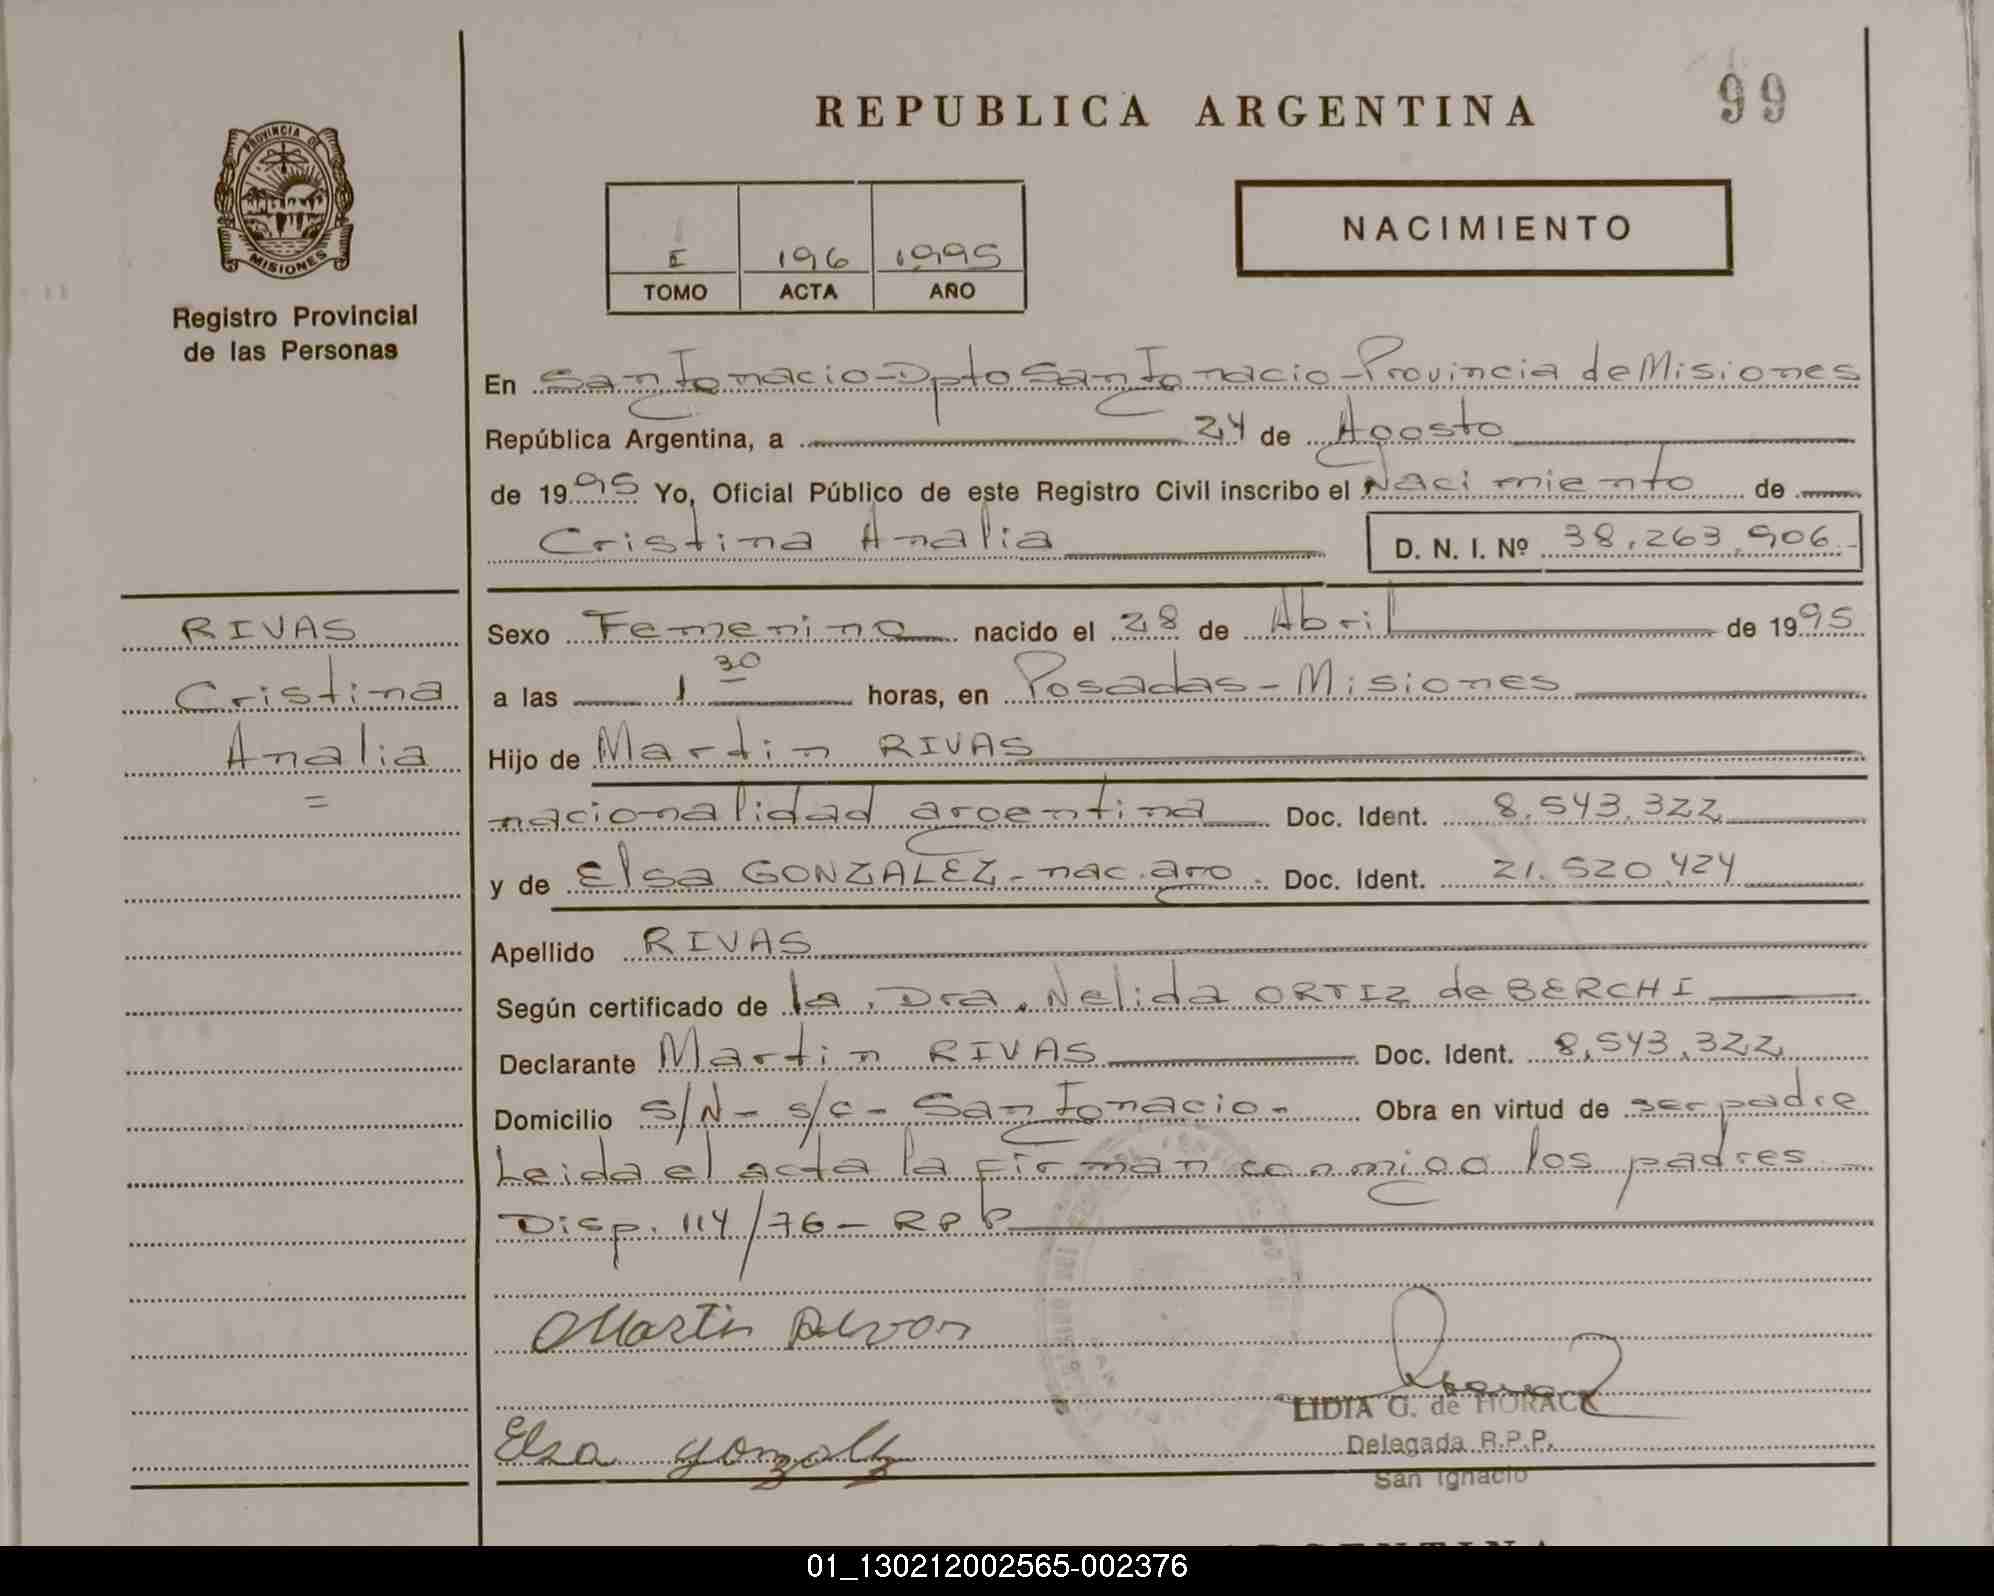 REPUBLICA ARGENTINA
99
PROVINCIA DE
MISIONES
Registro Provincial
de las Personas
I 196 1995
TOMO ACTA AÑO
NACIMIENTO
En San Ignacio - Dpto San Ignacio - Provincia de Misiones
República Argentina, a 24 de Agosto
de 1995 Yo, Oficial Público de este Registro Civil inscribo el Nacimiento de
Cristina Analia D. N. I. Nº 38.263.906
RIVAS
Cristina
Analia
=
Sexo Femenino nacido el 28 de Abril de 1995
a las 1 30 horas, en Posadas - Misiones
Hijo de Martin RIVAS
nacionalidad argentina Doc. Ident. 8.543.322
y de Elsa GONZALEZ - nac. arg. Doc. Ident. 21.520.424
Apellido RIVAS
Según certificado de la Dra. Nelida ORTIZ de BERCHI
Declarante Martin RIVAS Doc. Ident. 8.543.322
Domicilio S/N - S/C - San Ignacio - Obra en virtud de ser padre
Leida el acta la firman conmigo los padres
Disp. 114/76 - RPP
Martin
Elsa Gonzalez
LIDIA G. de HORACK
Delegada R.P.P.
San Ignacio
01_130212002565-002376